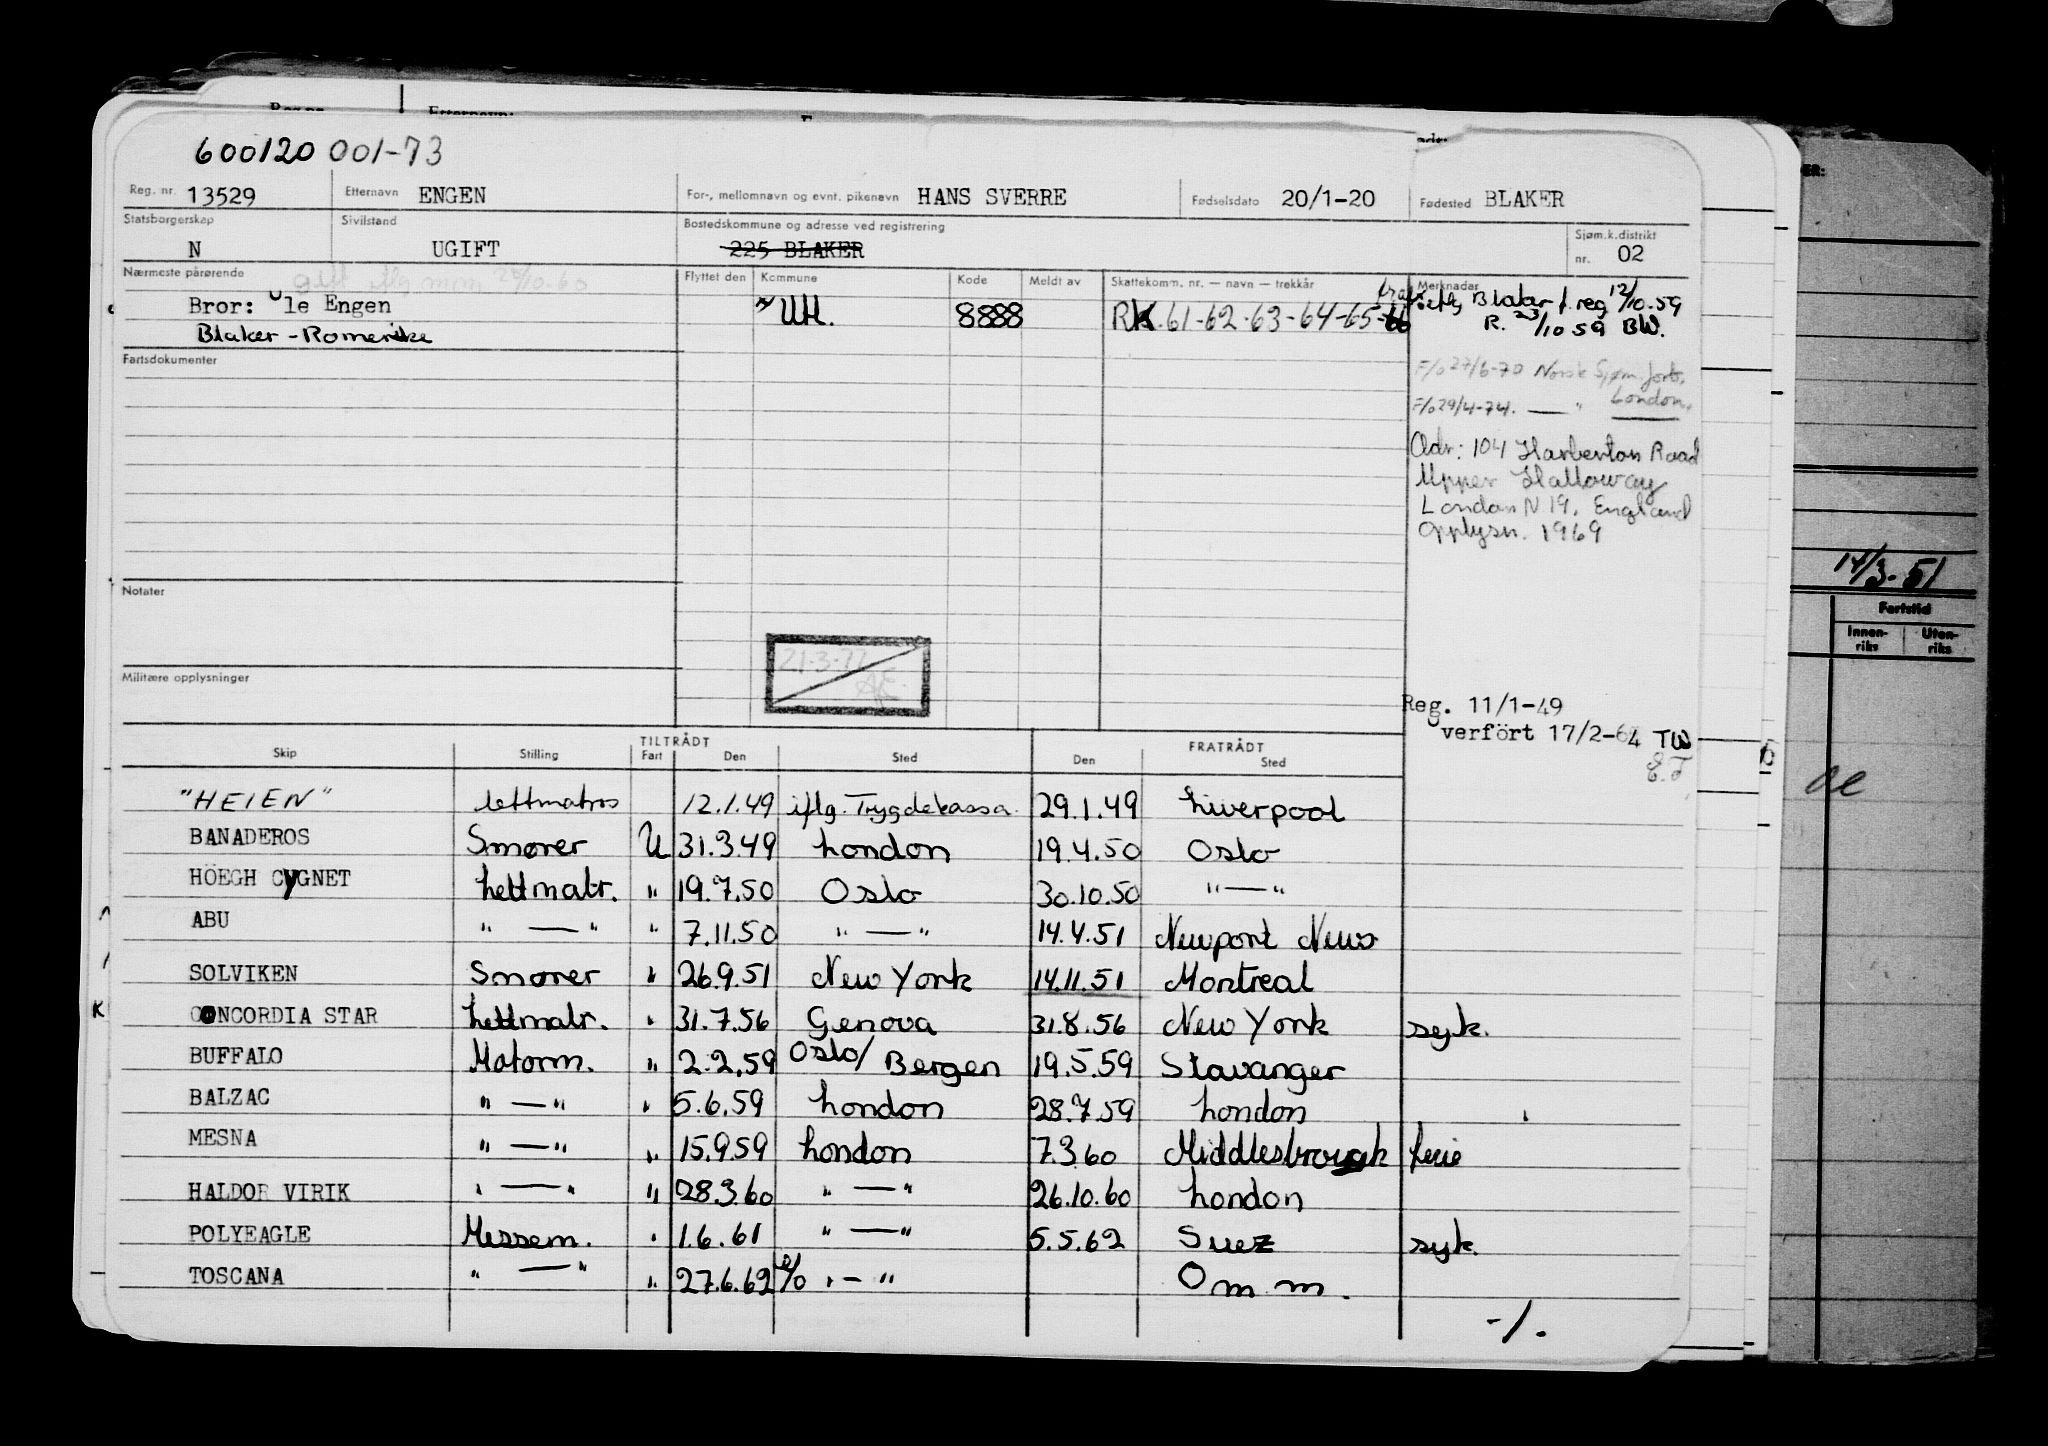 600120 001-73
Reg. nr. 13529 Etternavn ENGEN For-, mellomnavn og evnt. pikenavn HANS SVERRE Fødselsdato 20/1-20 Fødested BLAKER
Statsborgerskap N Sivilstand UGIFT Bostedskommune og adresse ved registrering 225 BLAKER Sjøm.k.distrikt nr. 02
gift iflg mm 26/10-60
Nærmeste pårørende Flyttet den Kommune Kode Meldt av Skattekomm. nr. — navn — trekkår Merknader
Bror: Ole Engen UH. 8888 RK. 61-62-63-64-65-66 iflg Blaker f. reg 12/10.59
Blaker - Romerike R. 23/10 59 BW.
Fartsdokumenter
F/o 27/6-70 Norsk Sjøm. forb. London.
F/o 29/4-74. — "
Adr: 104 Harberton Road
Upper Halloway
London N 19, England
Opplysn. 1969
14/3-51
Fartstid
Innen-riks Uten-riks
Notater
21-3-77
Militære opplysninger
Reg. 11/1-49
verført 17/2-64 TW
E.F
Skip Stilling TILTRÅDT Fart Den Sted FRATRÅDT Den Sted
"HEIEN" lettmatros 12.1.49 iflg. Trygdekassa. 29.1.49 Liverpool
BANADEROS Smører U 31.3.49 London 19.4.50 Oslo
HÖEGH CYGNET Lettmatr. " 19.7.50 Oslo 30.10.50 " — "
ABU " — " " 7.11.50 " — " 14.4.51 Newport News
SOLVIKEN Smører " 26.9.51 New York 14.11.51 Montreal
K CONCORDIA STAR Lettmatr. " 31.7.56 Genova 31.8.56 New York syk.
BUFFALO Motorm. " 2.2.59 Oslo/ Bergen 19.5.59 Stavanger
BALZAC " — " " 5.6.59 London 28.7.59 London
MESNA " — " " 15.9.59 London 7.3.60 Middlesbrough ferie
HALDOR VIRIK " — " " 28.3.60 " — " 26.10.60 London
POLYEAGLE Messem. " 1.6.61 " — " 5.5.62 Suez syk.
TOSCANA " — " " 27.6.62 " — " Om m.
-/.